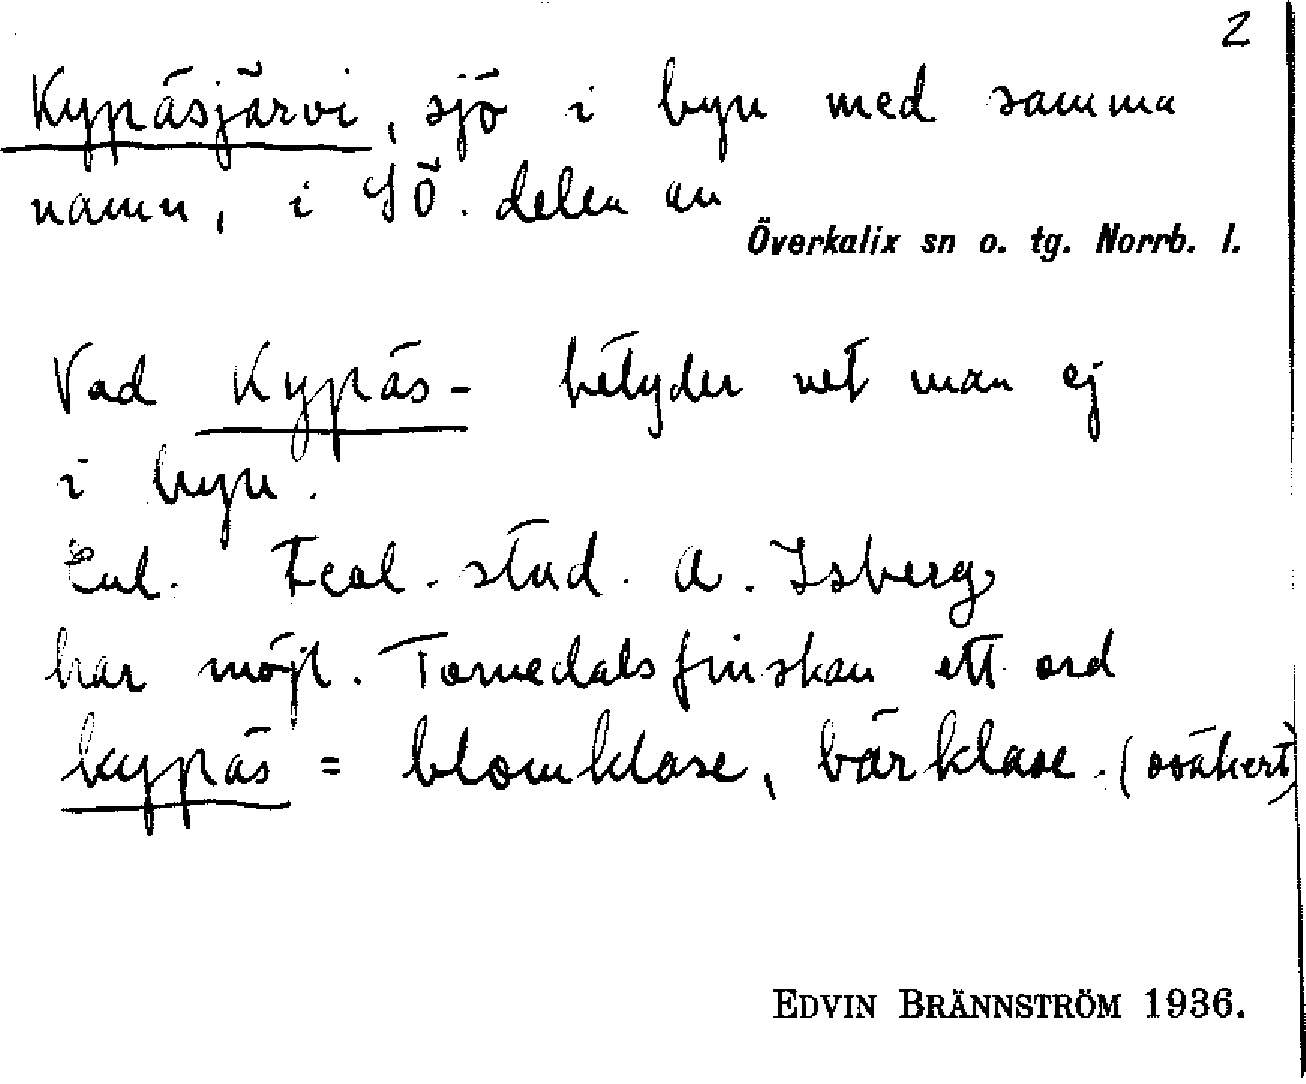 2
Kypäsjärvi, sjö i byn med samma
namn, i SÖ. delen av
Överkalix sn o. tg. Norrb. l.
Vad Kypäs- betyder vet man ej
i byn.
Enl. Teol. stud. A. Isberg
har möjl. Tornedalsfinskan ett ord
kypäs = blomklase, bärklase. (osäkert)
EDVIN BRÄNNSTRÖM 1936.